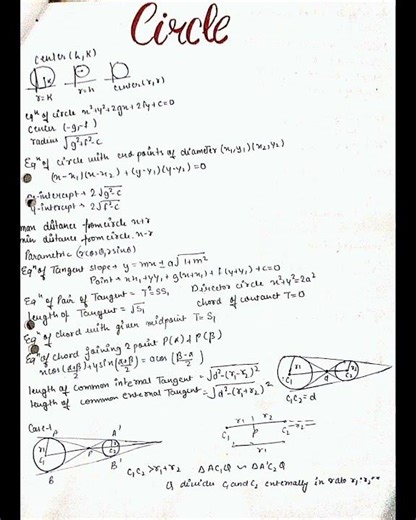 Circle
center (h, K)
r = K r = h center (r, r)
eqⁿ of circle x²+y²+2gx+2fy+c=0
center (-g, -f)
radius √g²+f²-c
Eqⁿ of circle with end points of diameter (x₁,y₁)(x₂,y₂)
(x-x₁)(x-x₂) + (y-y₁)(y-y₂)=0
x-intercept → 2√g²-c
y-intercept → 2√f²-c
max distance from circle x+r
min distance from circle x-r
Parametric (rcosθ, rsinθ)
Eqⁿ of Tangent slope → y = mx ± a√1+m²
Point → xx₁+yy₁+g(x+x₁)+f(y+y₁)+c=0
Eqⁿ of Pair of Tangent = T²=SS₁ Director circle x²+y²=2a²
length of Tangent = √S₁ chord of contant T=0
Eqⁿ of chord with given midpoint T=S₁
Eqⁿ of chord joining 2 point P(α) & P(β)
xcos(α+β/2)+ysin(α+β/2)=acos(β-α/2)
length of common internal Tangent = √d²-(r₁-r₂)²
length of common external Tangent = √d²-(r₁+r₂)²
r1 r2
C₁ Q C₂
C₁C₂=d
r₁ r₂
C₁ P C₂
r₁
Case-1
P A'
r1 C₁ C₂
B B'
C₁C₂ > r₁+r₂ Δ AC₁Q ~ Δ A'C₂Q
Q divides C₁ and C₂ externally in ratio r₁:r₂